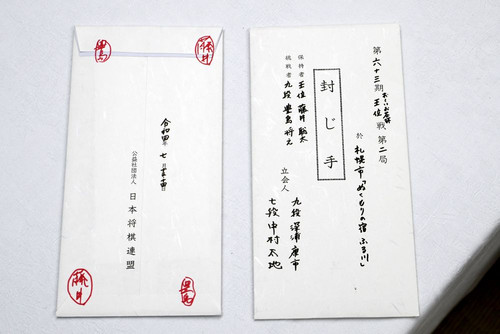 第六十三期 お〜いお茶杯 王位戦 第二局
於 札幌市「ぬくもりの宿 ふる川」
封じ手
保持者 王位 藤井聡太
挑戦者 九段 豊島将之
立会人
九段 深浦康市
七段 中村太地
藤井
豊島
令和四年 七月 日
公益社団法人 日本将棋連盟
豊島
藤井